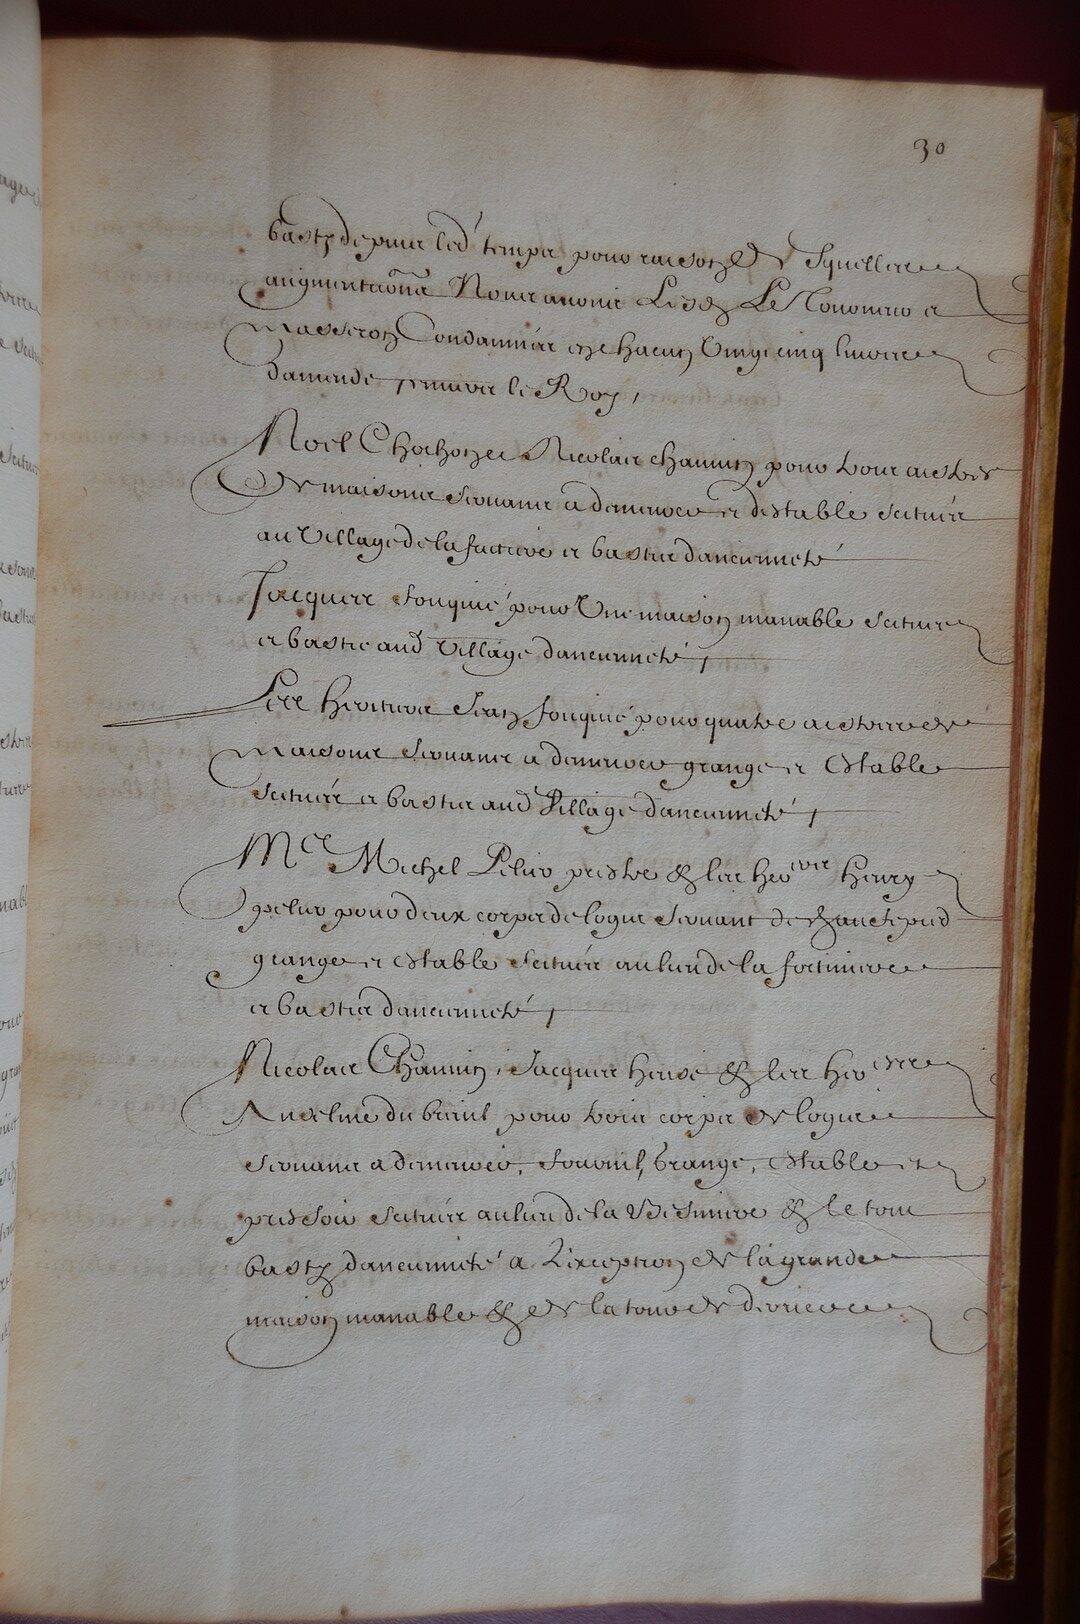 30
basty depuis led temps pour raison de squelles
augmentaōns Nous avons Lesd Le Tonnerre et
Masseron Condamnés en chacun Vingt cinq livres
damende envers le Roy,
Noel Chochon et Nicolas chauvin pour trois astres
de maisons servans a demeurer et destable scitués
au Village de la et bastis danciennete
Jacques fouquie pour Une maison manable scituee
et bastie aud Village danciennete,
Les heritiers Jean fouquie pour quatre astres de
maisons servans a demeurer grange et estable
scitués et bastis aud Village danciennete,
Mre Michel Peluo prestre & les heoiers Henry
peluo pour deux corps de logis servant de
grange et estable scitués au lieu de la
et bastis danciennete,
Nicolas Chauvin, Jacques hervé & les heoiers
Anselme du brieul pour trois corps de logis
servans a demeurer, fournil, Grange, estable et
pressoir scitués au lieu de la & le tout
basty danciennete a Lexception de la grande
maison manable & de la tour de derriere